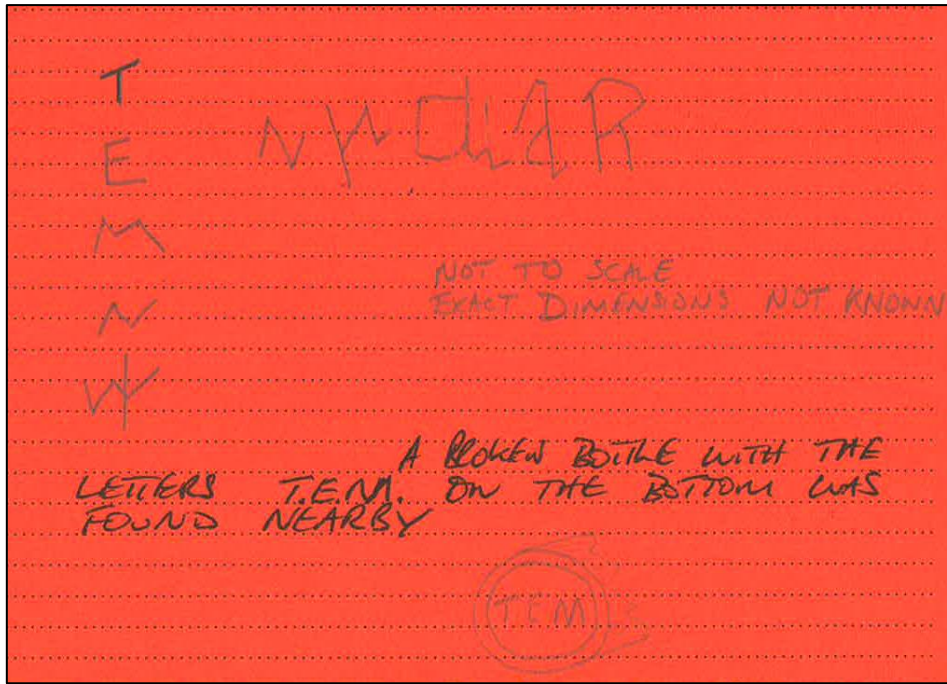 T
E
M
N
NOT TO SCALE
EXACT DIMENSIONS NOT KNOWN
A BROKEN BOTTLE WITH THE
LETTERS T.E.M. ON THE BOTTOM WAS
FOUND NEARBY
TEM